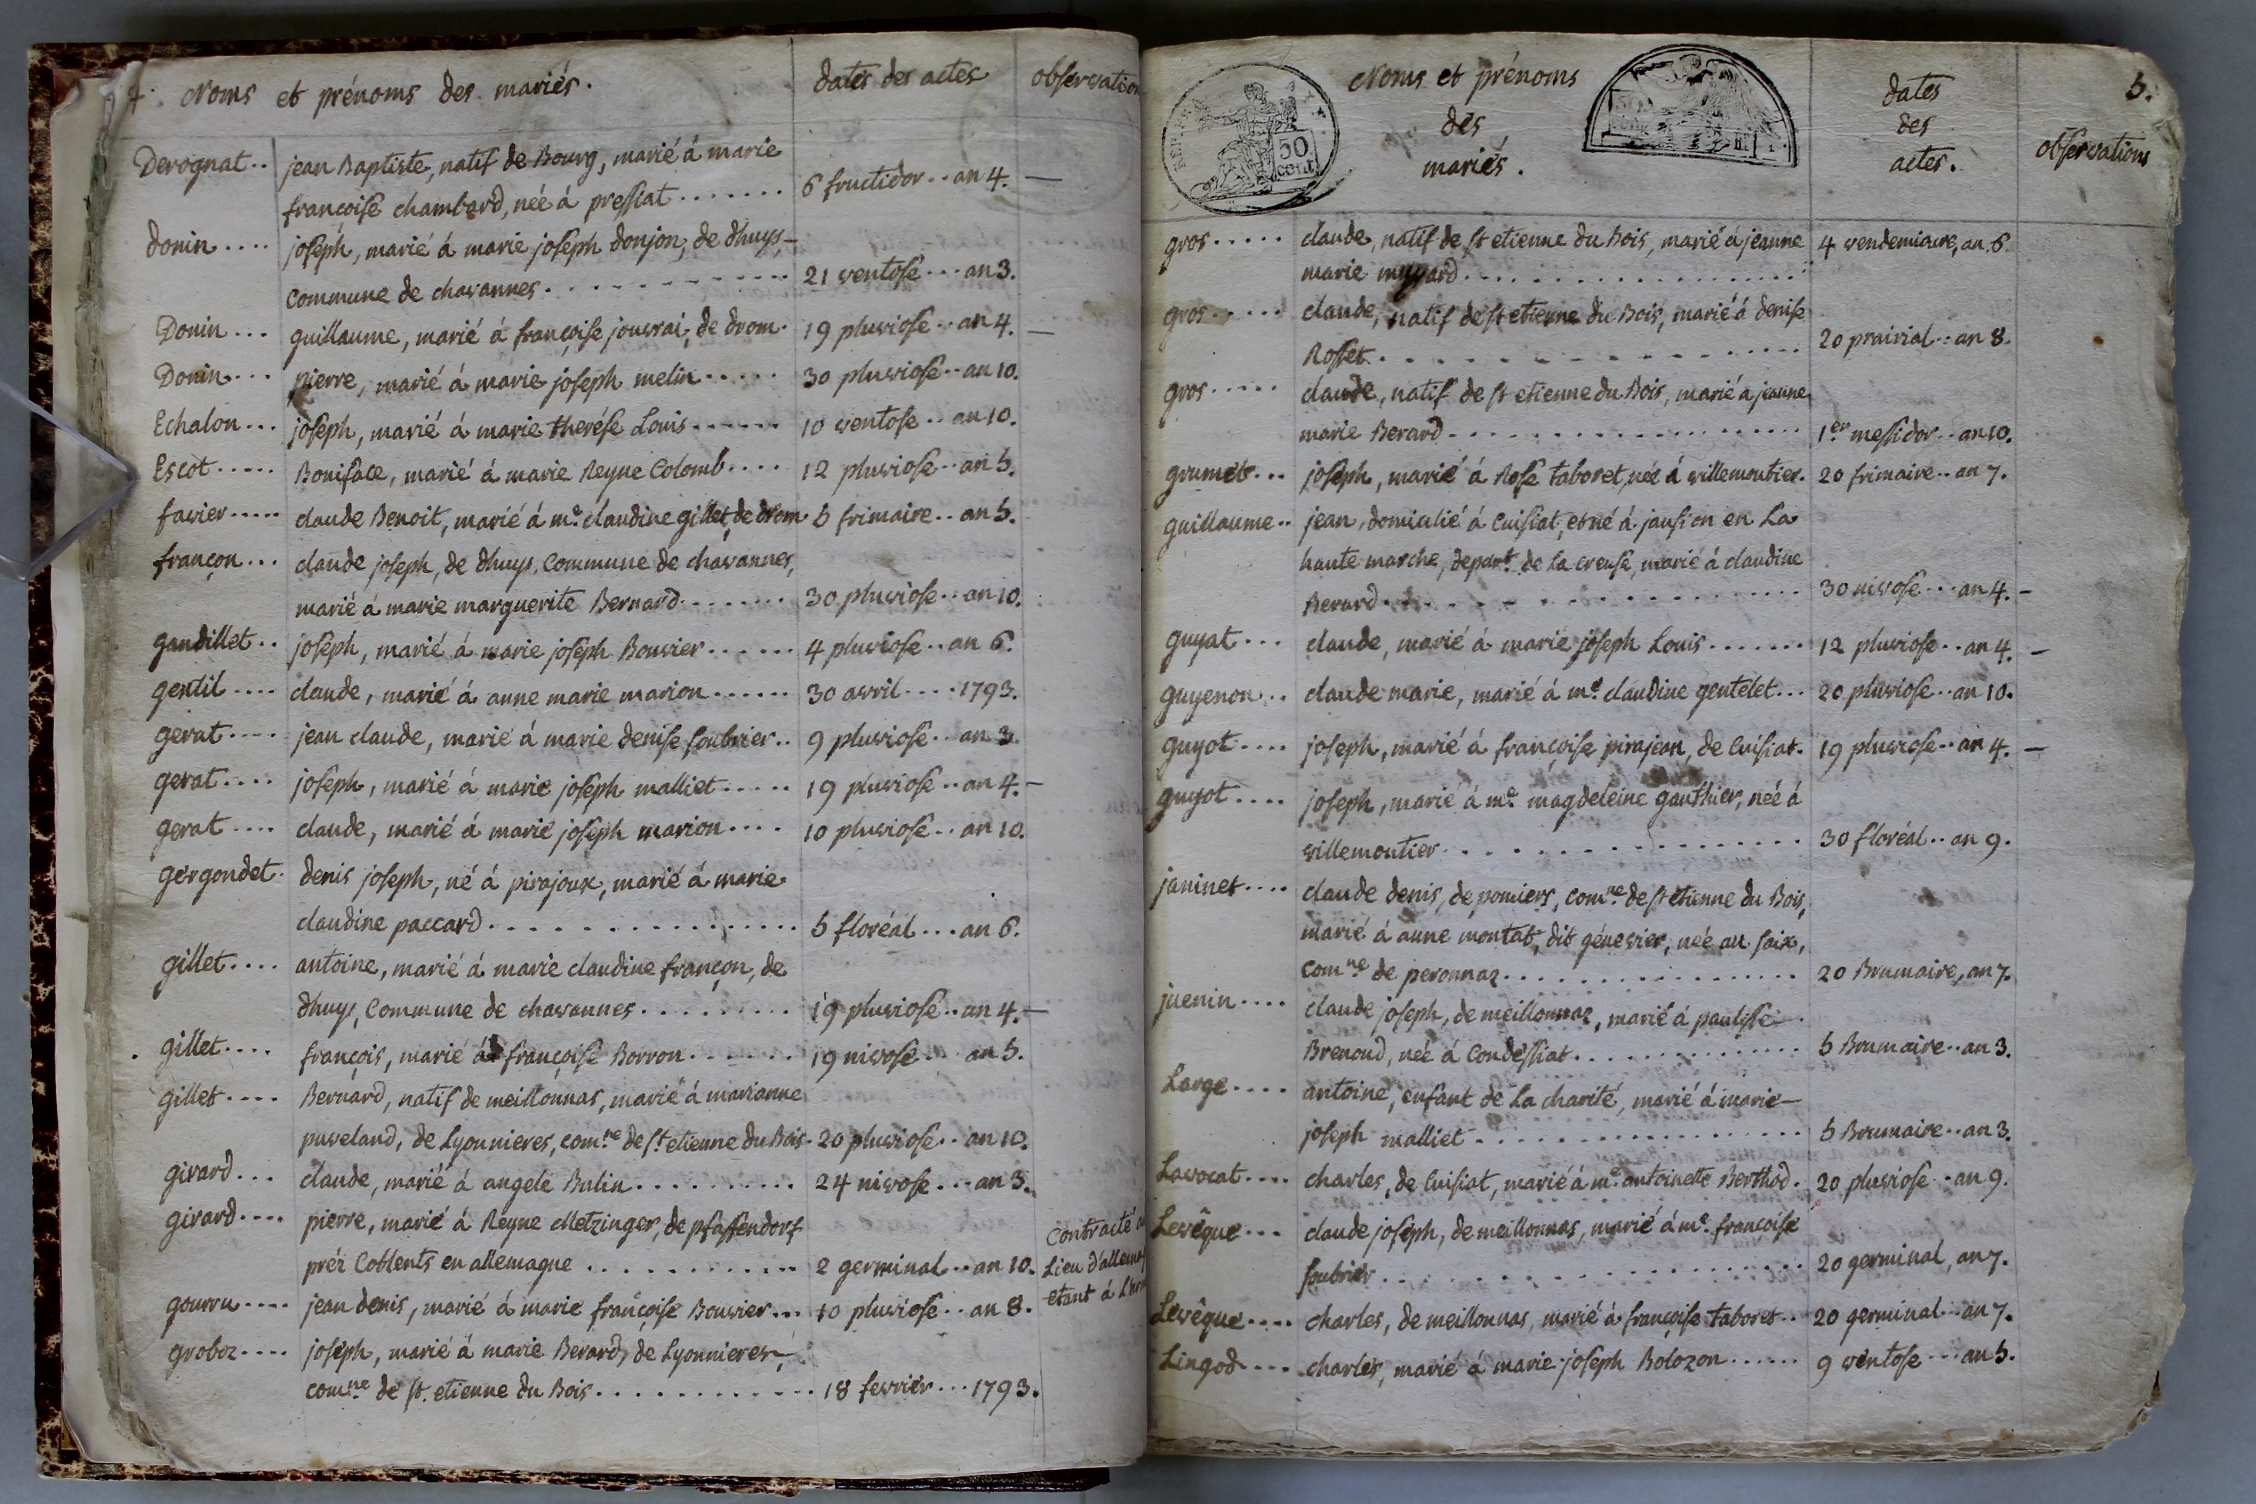 4. Noms et prénoms des mariés. dates des actes observation
Derognat.. jean Baptiste, natif de Bourg, marié á marie
françoise chambard, neé á pressiat....... 6 fructidor.. an 4. —
donin.... joseph, marié á marie joseph donjon, de dhuys,
commune de chavannes........... 21 ventose... an 3.
Donin... guillaume, marié á françoise jouvrai, de drom. 19 pluviose.. an 4. —
Donin... pierre, marié á marie joseph melin..... 30 pluviose.. an 10.
Echalon... joseph, marié á marie therése Louis...... 10 ventose.. an 10.
Escot..... Boniface, marié á marie Reyne Colomb.... 12 pluviose.. an 5.
favier..... claude Benoit, marié á me. claudine gillet, de drom 5 frimaire.. an 5.
françon... claude joseph, de dhuys, Commune de chavannes,
marié á marie marguerite Bernard....... 30 pluviose.. an 10.
gandillet.. joseph, marié á marie joseph Bouvier...... 4 pluviose.. an 6.
gentil.... claude, marié á anne marie marion...... 30 avril.... 1793.
gerat.... jean claude, marié á marie denise soubrier.. 9 pluviose.. an 3.
gerat.... joseph, marié á marie joseph malliet..... 19 pluviose.. an 4. —
gerat.... claude, marié á marie joseph marion.... 10 pluviose.. an 10.
gergondet. denis joseph, né á pirajoux, marié á marie
claudine paccard................ 5 floréal... an 6.
gillet.... antoine, marié á marie claudine françon, de
dhuys, Commune de chavannes......... 19 pluviose.. an 4. —
gillet.... françois, marié á françoise Borron...... 19 nivose... an 5.
gillet.... Bernard, natif de meillonnas, marié á marianne
puveland, de Lyonnieres, comne. de St. etienne du Bois. 20 pluviose.. an 10.
girard... claude, marié á angele Bulin......... 24 nivose... an 3.
girard.... pierre, marié á Reyne Metzinger, de pfaffendorf
préz Coblents en allemagne........... 2 germinal.. an 10. Contracté
Lieu d'allemag
etant á
gourru.... jean denis, marié á marie françoise Bouvier... 10 pluviose.. an 8.
groboz.... joseph, marié á marie Berard, de Lyonnieres,
comne. de St. etienne du Bois............ 18 fevrier... 1793.
5.
Noms et prénoms
des
mariés.
50
cent
dates
des
actes.
observations
gros..... claude, natif de St etienne du Bois, marié á jeanne 4 vendemiaire, an 6.
marie ..................
gros..... claude, natif de St etienne du Bois, marié á denise
Rosset.................. 20 prairial.. an 8.
gros..... claude, natif de St etienne du Bois, marié a jeanne
marie Berard.................. 1er messidor.. an 10.
grumet... joseph, marié á Rose taboret, neé á villemoutier. 20 frimaire.. an 7.
guillaume.. jean, domicilié á Cuisiat, et né á jausion en La
haute marche, depart. de la creuse, marié á claudine
Berard.................. 30 nivose... an 4. —
guyat... claude, marié á marie joseph Louis....... 12 pluviose.. an 4. —
guyenon... claude marie, marié á me. claudine gentelet... 20 pluviose.. an 10.
guyot.... joseph, marié á françoise pirajean, de Cuisiat. 19 pluviose.. an 4. —
guyot.... joseph, marié á me. magdeleine gauthier, neé á
villemoutier................ 30 floréal.. an 9.
janinet.... claude denis, de pomiers, comne. de St etienne du Bois,
marié á anne montat, dit génevier, neé au saix,
comne. de peronnaz............... 20 Brumaire, an 7.
juenin.... claude joseph, de meillonnaz, marié á paulisse
Brenoud, neé á Condessiat............. 5 Brumaire.. an 3.
Large.... antoine, enfant de La charité, marié á marie
joseph malliet................. 5 Brumaire.. an 3.
Lavocat.... charles, de Cuisiat, marié á me. antoinette Berthod. 20 pluviose.. an 9.
Levêque... claude joseph, de meillonnas, marié á me. françoise
soubrier.................. 20 germinal, an 7.
Levêque.... charles, de meillonnas, marié á françoise taboret.. 20 germinal.. an 7.
Lingod.... charles, marié á marie joseph Bolozon...... 9 ventose... an 5.